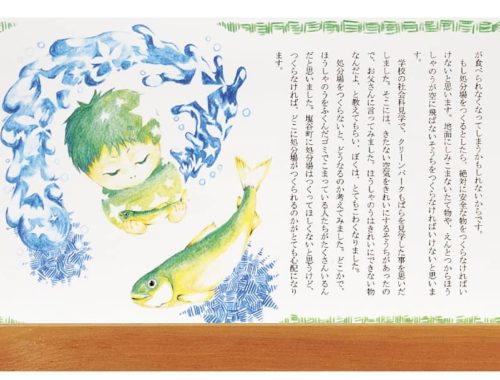 が食べられなくなってしまうかもしれないからです。
もし処分場をつくるとしたら、絶対に安全な物をつくらなければい
けないと思います。地面にしみこまないたて物や、えんとつからほう
しゃのうが空に飛ばないそうちをつくらなければいけないと思いま
す。
学校の社会科見学で、クリーンパークもばらを見学した事を思いだ
しました。そこには、きたない空気をきれいにするそうちがあったの
で、お父さんに言ってみました。ほうしゃのうはきれいにできない物
なんだよ。と教えてもらい、ぼくは、とてもこわくなりました。
処分場をつくらないと、どうなるのか考えてみました。どこかで、
ほうしゃのうをふくんだゴミでこまっている人たちがたくさんいるん
だと思いました。塩谷町に処分場はつくってほしくないと思うけど、
つくらなければ、どこに処分場がつくられるのかがとても心配になり
ます。